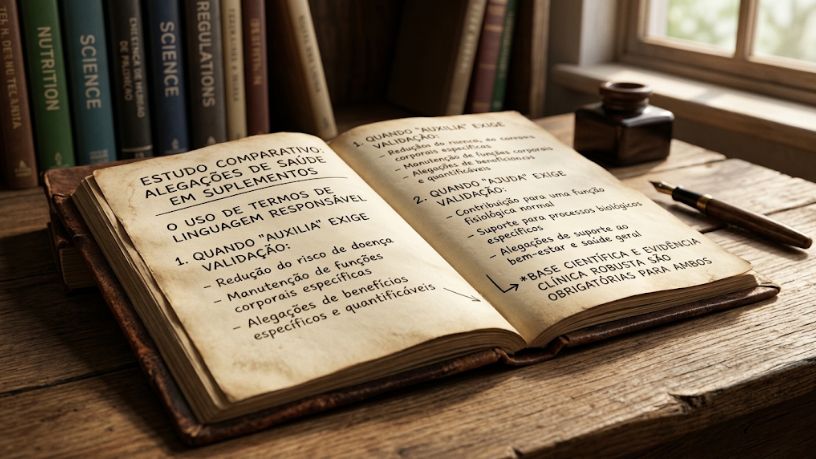 NUTRITION
SCIENCE
SCIENCE
REGULATIONS
ESTUDO COMPARATIVO:
ALEGAÇÕES DE SAÚDE
EM SUPLEMENTOS
O USO DE TERMOS DE
LINGUAGEM RESPONSÁVEL
1. QUANDO "AUXILIA" EXIGE
VALIDAÇÃO:
- Redução do risco de doença
- Manutenção de funções
corporais específicas
- Alegações de benefícios
específicos e quantificáveis
1. QUANDO "AUXILIA" EXIGE
VALIDAÇÃO:
- Redução do
corporais específicas
- Manutenção de funções corporais
- Alegações de
e quantificáveis
2. QUANDO "AJUDA" EXIGE
VALIDAÇÃO:
- Contribuição para uma função
fisiológica normal
- Suporte para processos biológicos
específicos
- Alegações de suporte ao
bem-estar e saúde geral
*BASE CIENTÍFICA E EVIDÊNCIA
CLÍNICA ROBUSTA SÃO
OBRIGATÓRIAS PARA AMBOS